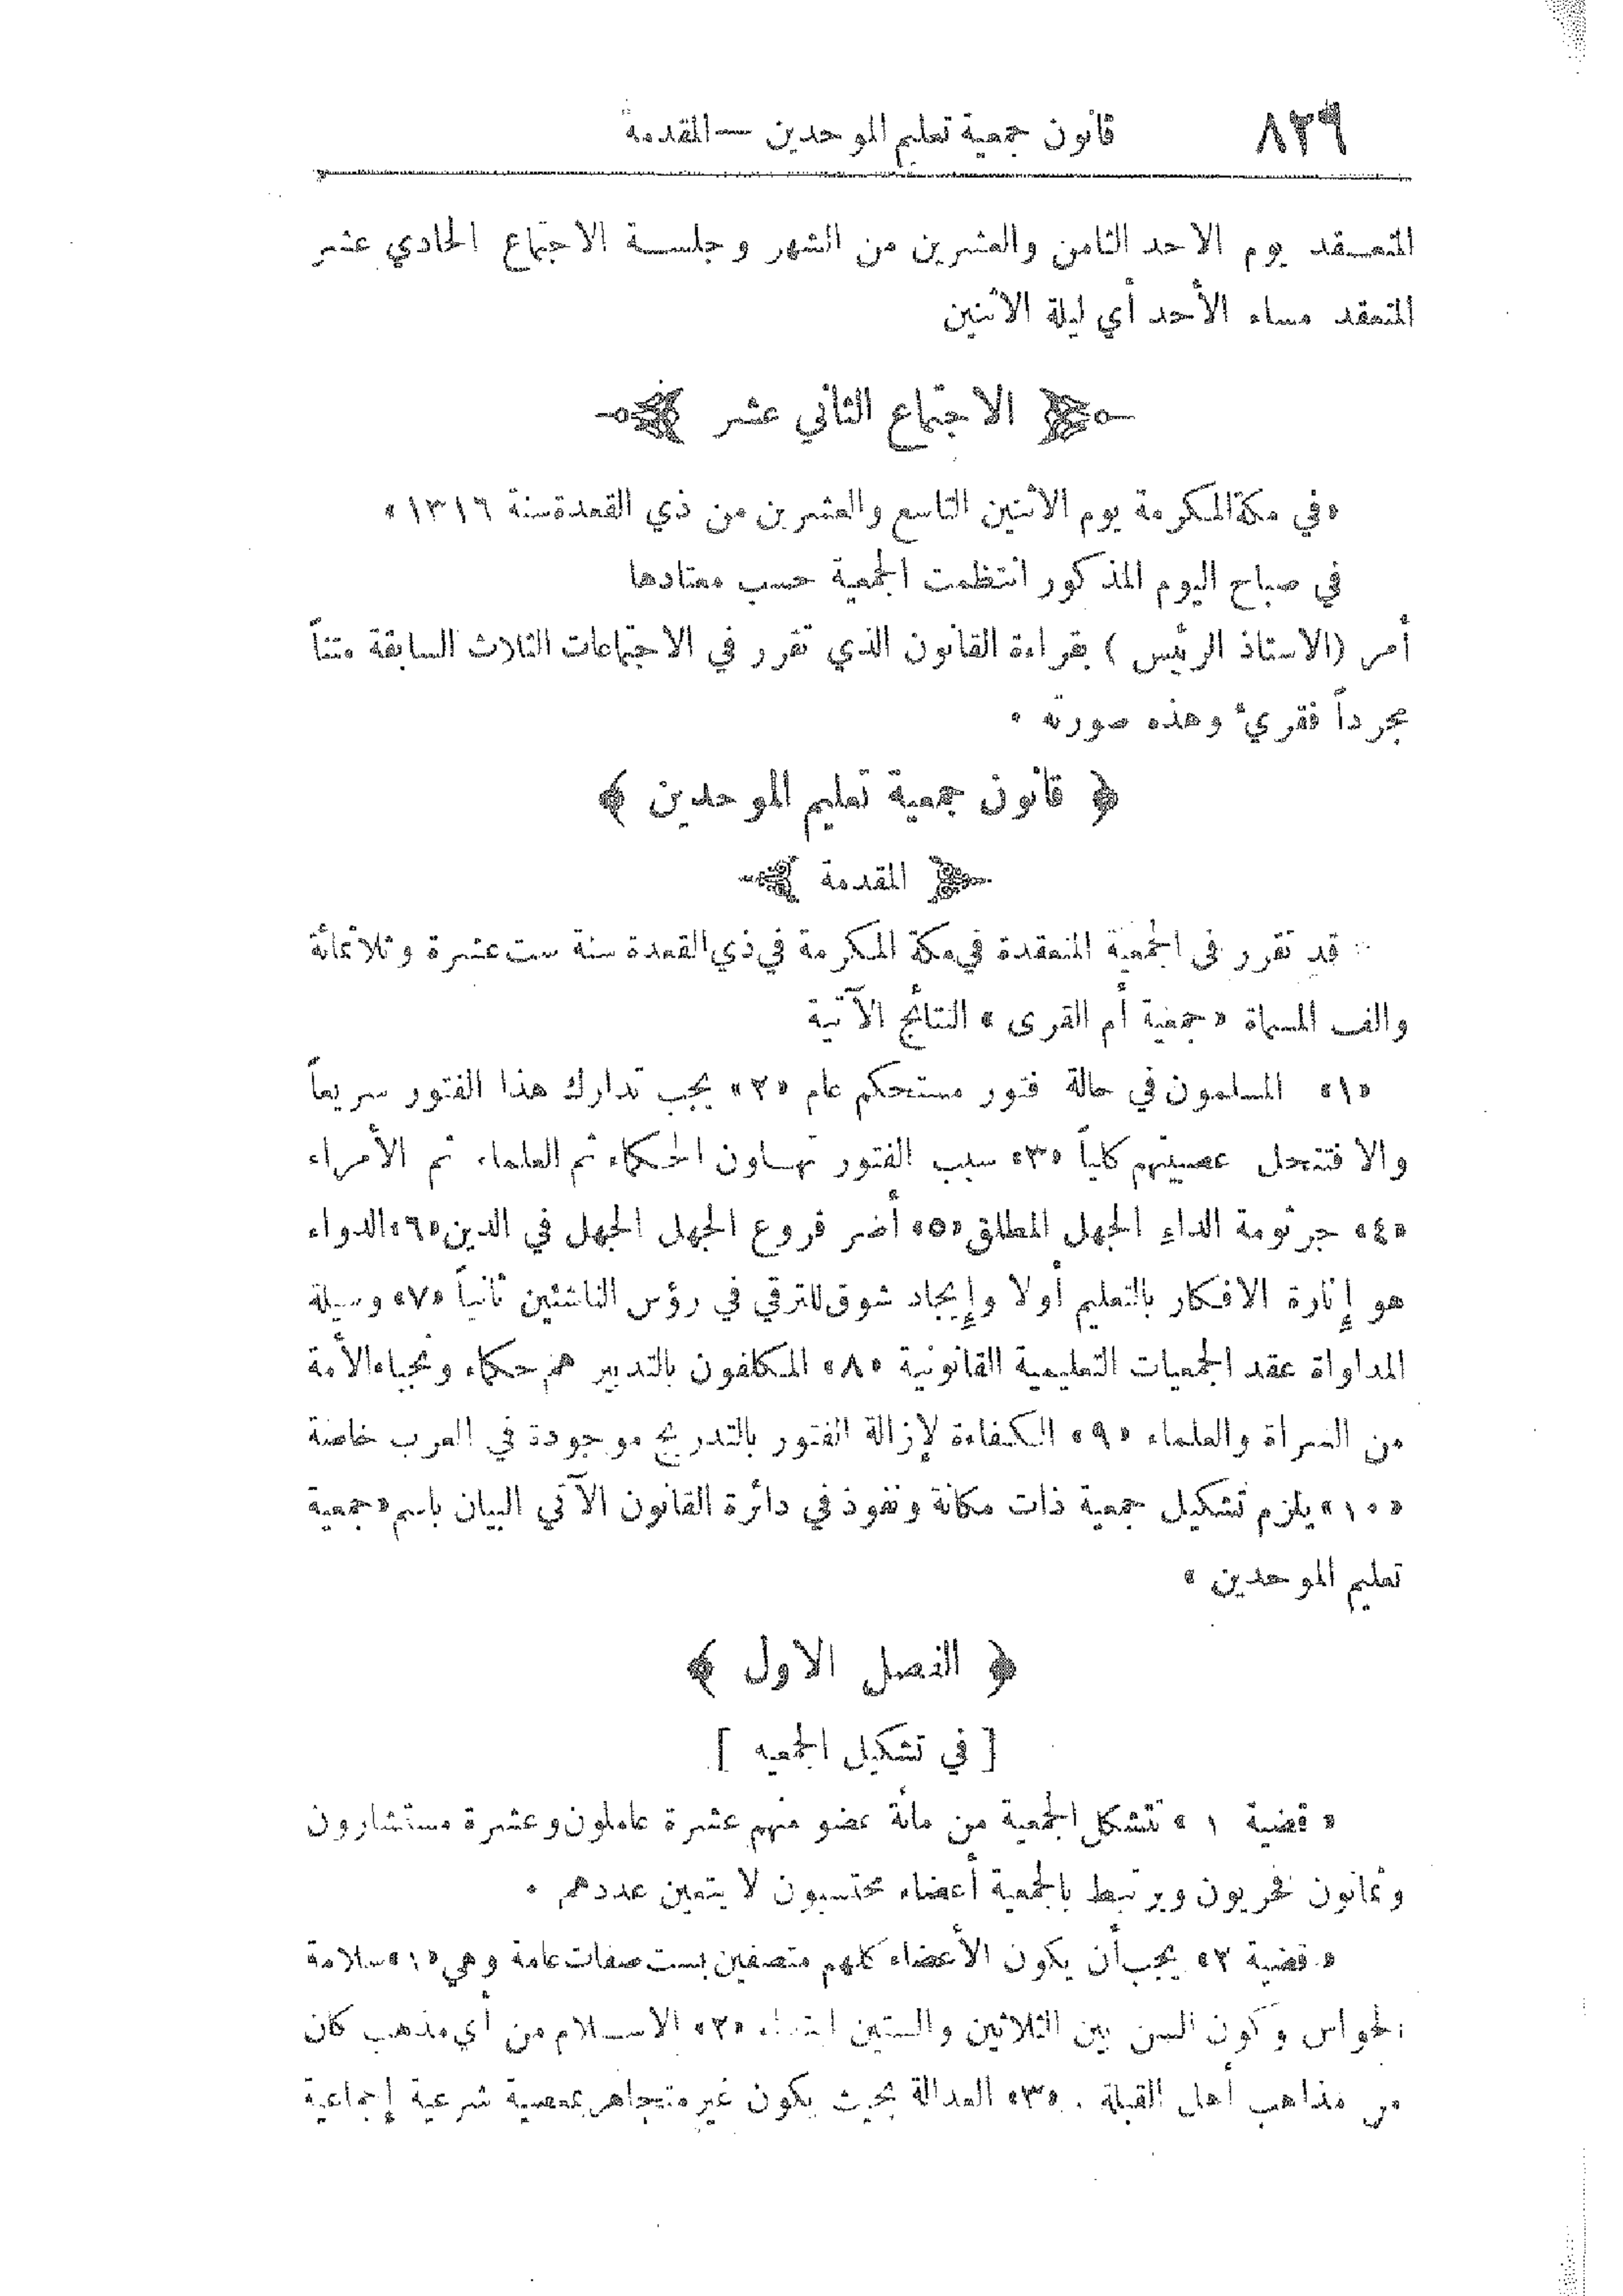 ٨٢٩ قانون جمعية تعليم الموحدين — المقدمة
المنعقد يوم الاحد الثامن والعشرين من الشهر وجلسة الاجتماع الحادي عشر
المنعقد مساء الأحد أي ليلة الاثنين
الاجتماع الثاني عشر
«في مكة المكرمة يوم الاثنين التاسع والعشرين من ذي القعدة سنة ١٣١٦»
في صباح اليوم المذكور انتظمت الجمعية حسب معتادها
أمر (الاستاذ الرئيس) بقراءة القانون الذي تقرر في الاجتماعات الثلاث السابقة متناً
مجرداً فقرئ وهذه صورته .
﴿ قانون جمعية تعليم الموحدين ﴾
المقدمة
قد تقرر في الجمعية المنعقدة في مكة المكرمة في ذي القعدة سنة ست عشرة وثلاثمائة
والف المسماة «جمعية أم القرى» النتائج الآتية
«١» المسلمون في حالة فتور مستحكم عام «٢» يجب تدارك هذا الفتور سريعاً
والا فتنحل عصبيتهم كلياً «٣» سبب الفتور تهاون الحكماء ثم العلماء ثم الأمراء
«٤» جرثومة الداء الجهل المطلق «٥» أضر فروع الجهل الجهل في الدين «٦» الدواء
هو إنارة الافكار بالتعليم أولا وإيجاد شوق للترقي في رؤس الناشئين ثانياً «٧» وسيلة
المداواة عقد الجمعيات التعليمية القانونية «٨» المكلفون بالتدبير هم حكماء ونجباء الأمة
من السراة والعلماء «٩» الكفاءة لإزالة الفتور بالتدريج موجودة في العرب خاصة
«١٠» يلزم تشكيل جمعية ذات مكانة ونفوذ في دائرة القانون الآتي البيان باسم «جمعية
تعليم الموحدين»
﴿ الفصل الاول ﴾
[ في تشكيل الجمعيه ]
« قضية ١ » تتشكل الجمعية من مائة عضو منهم عشرة عاملون وعشرة مستشارون
وثمانون فخريون ويرتبط بالجمعية أعضاء محتسبون لا يتعين عددهم .
« قضية ٢» يجب أن يكون الأعضاء كلهم متصفين بست صفات عامة وهي «١» سلامة
الحواس وكون السن بين الثلاثين والستين ابتداء «٢» الاسلام من أي مذهب كان
من مذاهب أهل القبلة . «٣» العدالة بحيث يكون غير متجاهر بمعصية شرعية إجماعية